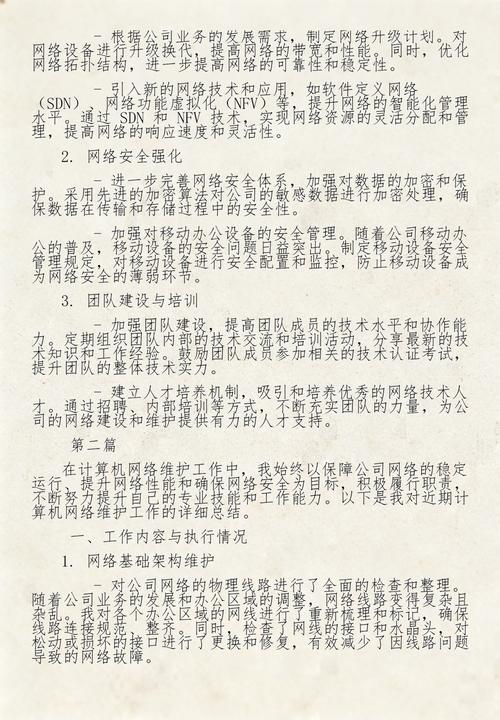 - 根据公司业务的发展需求，制定网络升级计划。对
网络设备进行升级换代，提高网络的带宽和性能。同时，优化
网络拓扑结构，进一步提高网络的可靠性和稳定性。
- 引入新的网络技术和应用，如软件定义网络
（SDN）、网络功能虚拟化（NFV）等，提升网络的智能化管理
水平。通过 SDN 和 NFV 技术，实现网络资源的灵活分配和管
理，提高网络的响应速度和灵活性。
2. 网络安全强化
- 进一步完善网络安全体系，加强对数据的加密和保
护。采用先进的加密算法对公司的敏感数据进行加密处理，确
保数据在传输和存储过程中的安全性。
- 加强对移动办公设备的安全管理。随着公司移动办
公的普及，移动设备的安全问题日益突出。制定移动设备安全
管理规定，对移动设备进行安全配置和监控，防止移动设备成
为网络安全的薄弱环节。
3. 团队建设与培训
- 加强团队建设，提高团队成员的技术水平和协作能
力。定期组织团队内部的技术交流和培训活动，分享最新的技
术知识和工作经验。鼓励团队成员参加相关的技术认证考试，
提升团队的整体技术实力。
- 建立人才培养机制，吸引和培养优秀的网络技术人
才。通过招聘、内部培训等方式，不断充实团队的力量，为公
司的网络建设和维护提供有力的人才支持。
第二篇
在计算机网络维护工作中，我始终以保障公司网络的稳定
运行、提升网络性能和确保网络安全为目标，积极履行职责，
不断努力提升自己的专业技能和工作能力。以下是我对近期计
算机网络维护工作的详细总结。
一、工作内容与执行情况
1. 网络基础架构维护
- 对公司网络的物理线路进行了全面的检查和整理。
随着公司业务的发展和办公区域的调整，网络线路变得复杂且
杂乱。我对各个办公区域的网线进行了重新梳理和标记，确保
线路连接规范、整齐。同时，检查了网线的接口和水晶头，对
松动或损坏的接口进行了更换和修复，有效减少了因线路问题
导致的网络故障。